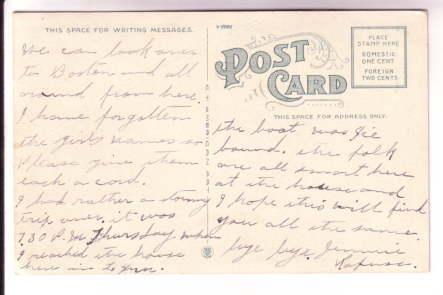 THIS SPACE FOR WRITING MESSAGES.
We can look over
to Boston and all
around from here.
I have forgotten
the girls names so
Please give them
each a card.
I had rather a stormy
trip over. it was
7.30 P.M. Thursday when
I reached the house
here in
POST
CARD
PLACE
STAMP HERE
DOMESTIC
ONE CENT
FOREIGN
TWO CENTS
THIS SPACE FOR ADDRESS ONLY.
the boat was Ice
bound. the folk
are all smart here
at the house and
I hope this will find
you all the same.
bye bye, Jennie